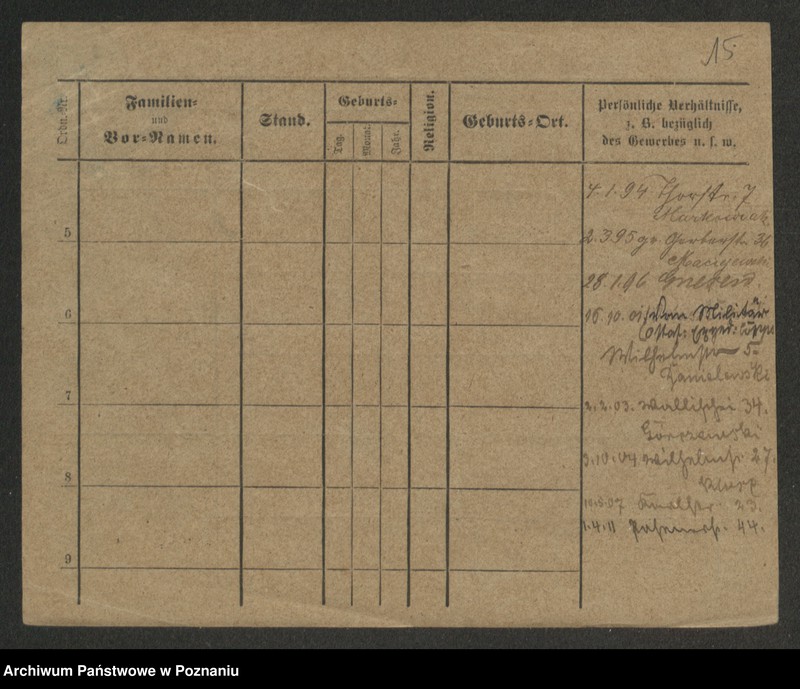 15
Ordn. Nr.
Familien-
und
Vor-Namen.
Stand.
Geburts-
Tag.
Monat
Jahr.
Religion.
Geburts-Ort.
Persönliche Verhältnisse,
z. B. bezüglich
des Gewerbes u. s. w.
4.1.94 Thorstr. 7
Markowiak
5
2.3.95 gr. Gerberstr. 36
28.1.96 Gnesen.
6
16.10.01 vom Militär
Wilhelmstr 5
Danielewski
7
2.2.03. Wallischei 34.
8
3.10.04 Wilhelmstr. 27.
10.5.07 23.
1.4.11 44.
9
Archiwum Państwowe w Poznaniu